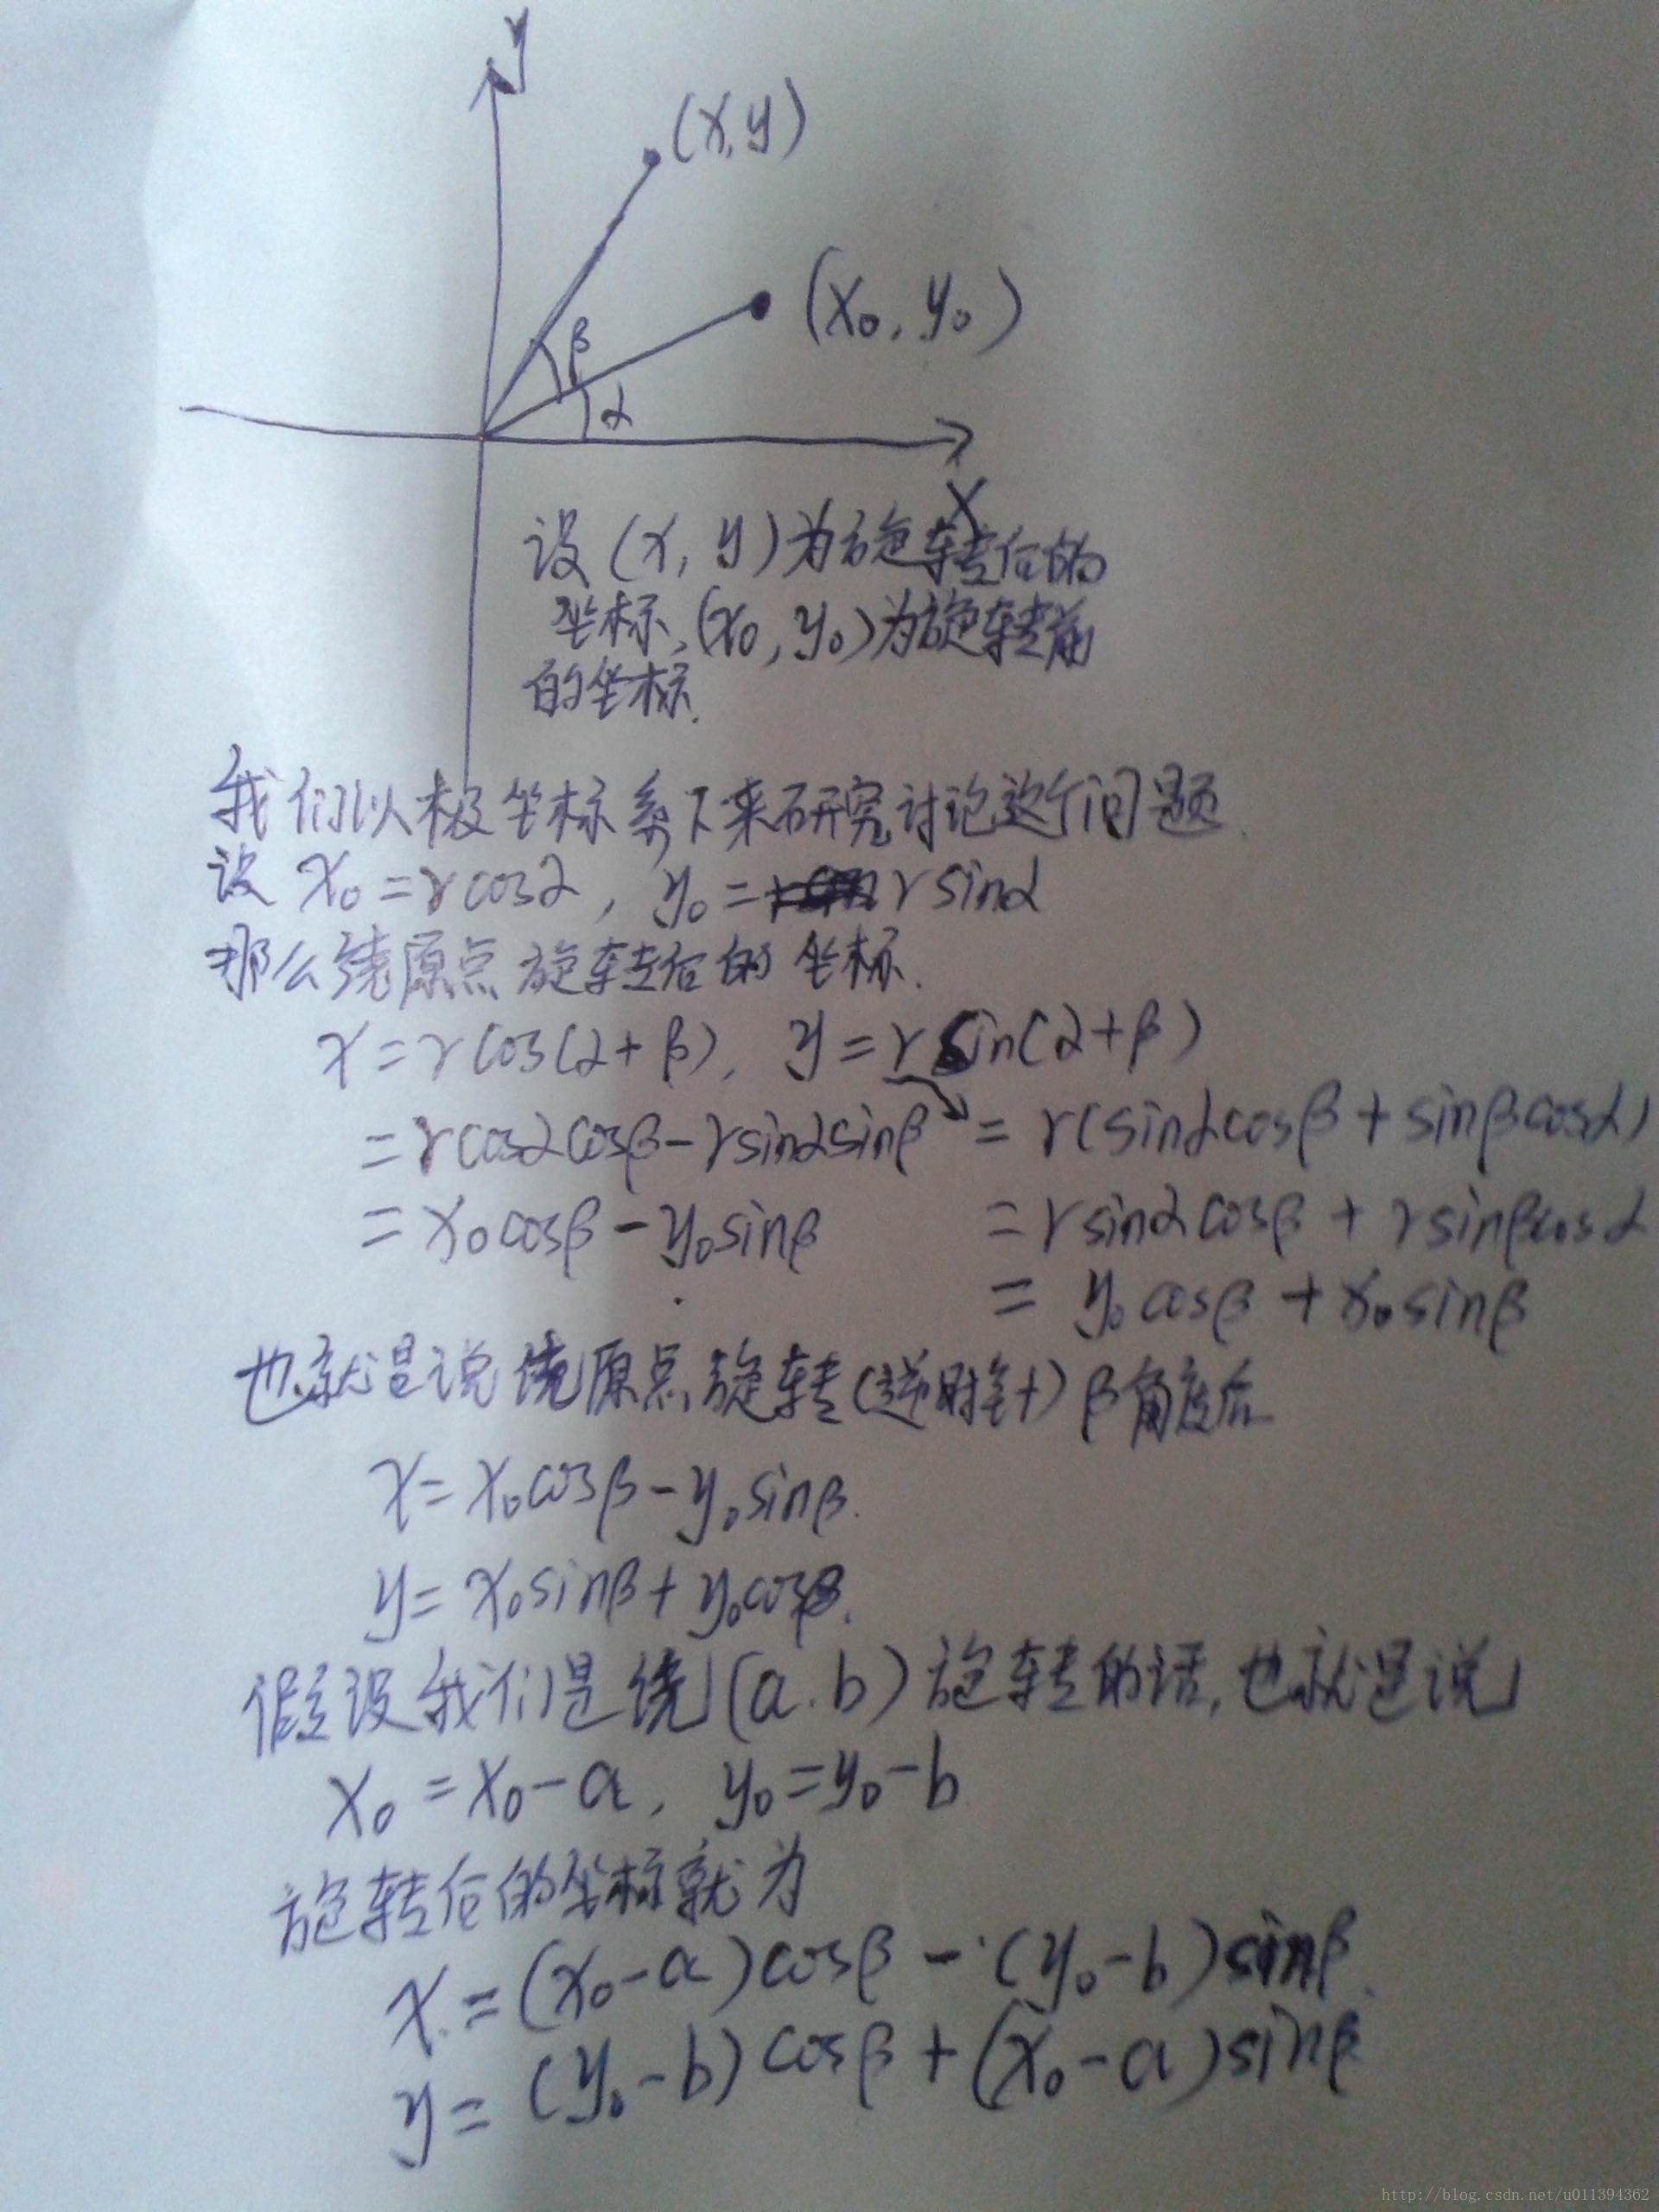 y
(x,y)
(x₀,y₀)
β
α
x
设(x,y)为旋转后的
坐标,(x₀,y₀)为旋转前
的坐标.
我们以极坐标系下来研究讨论这个问题.
设 x₀=rcosα, y₀= rsinα
那么绕原点旋转后的坐标.
x=rcos(α+β), y=rsin(α+β)
=rcosαcosβ-rsinαsinβ =r(sinαcosβ+sinβcosα)
=x₀cosβ-y₀sinβ =rsinαcosβ+rsinβcosα
=y₀cosβ+x₀sinβ
也就是说绕原点旋转(逆时针)β角度后
x=x₀cosβ-y₀sinβ.
y=x₀sinβ+y₀cosβ.
假设我们是绕(a.b)旋转的话,也就是说
x₀=x₀-a, y₀=y₀-b
旋转后的坐标就为
x=(x₀-a)cosβ-(y₀-b)sinβ.
y=(y₀-b)cosβ+(x₀-a)sinβ
http://blog.csdn.net/u011394362